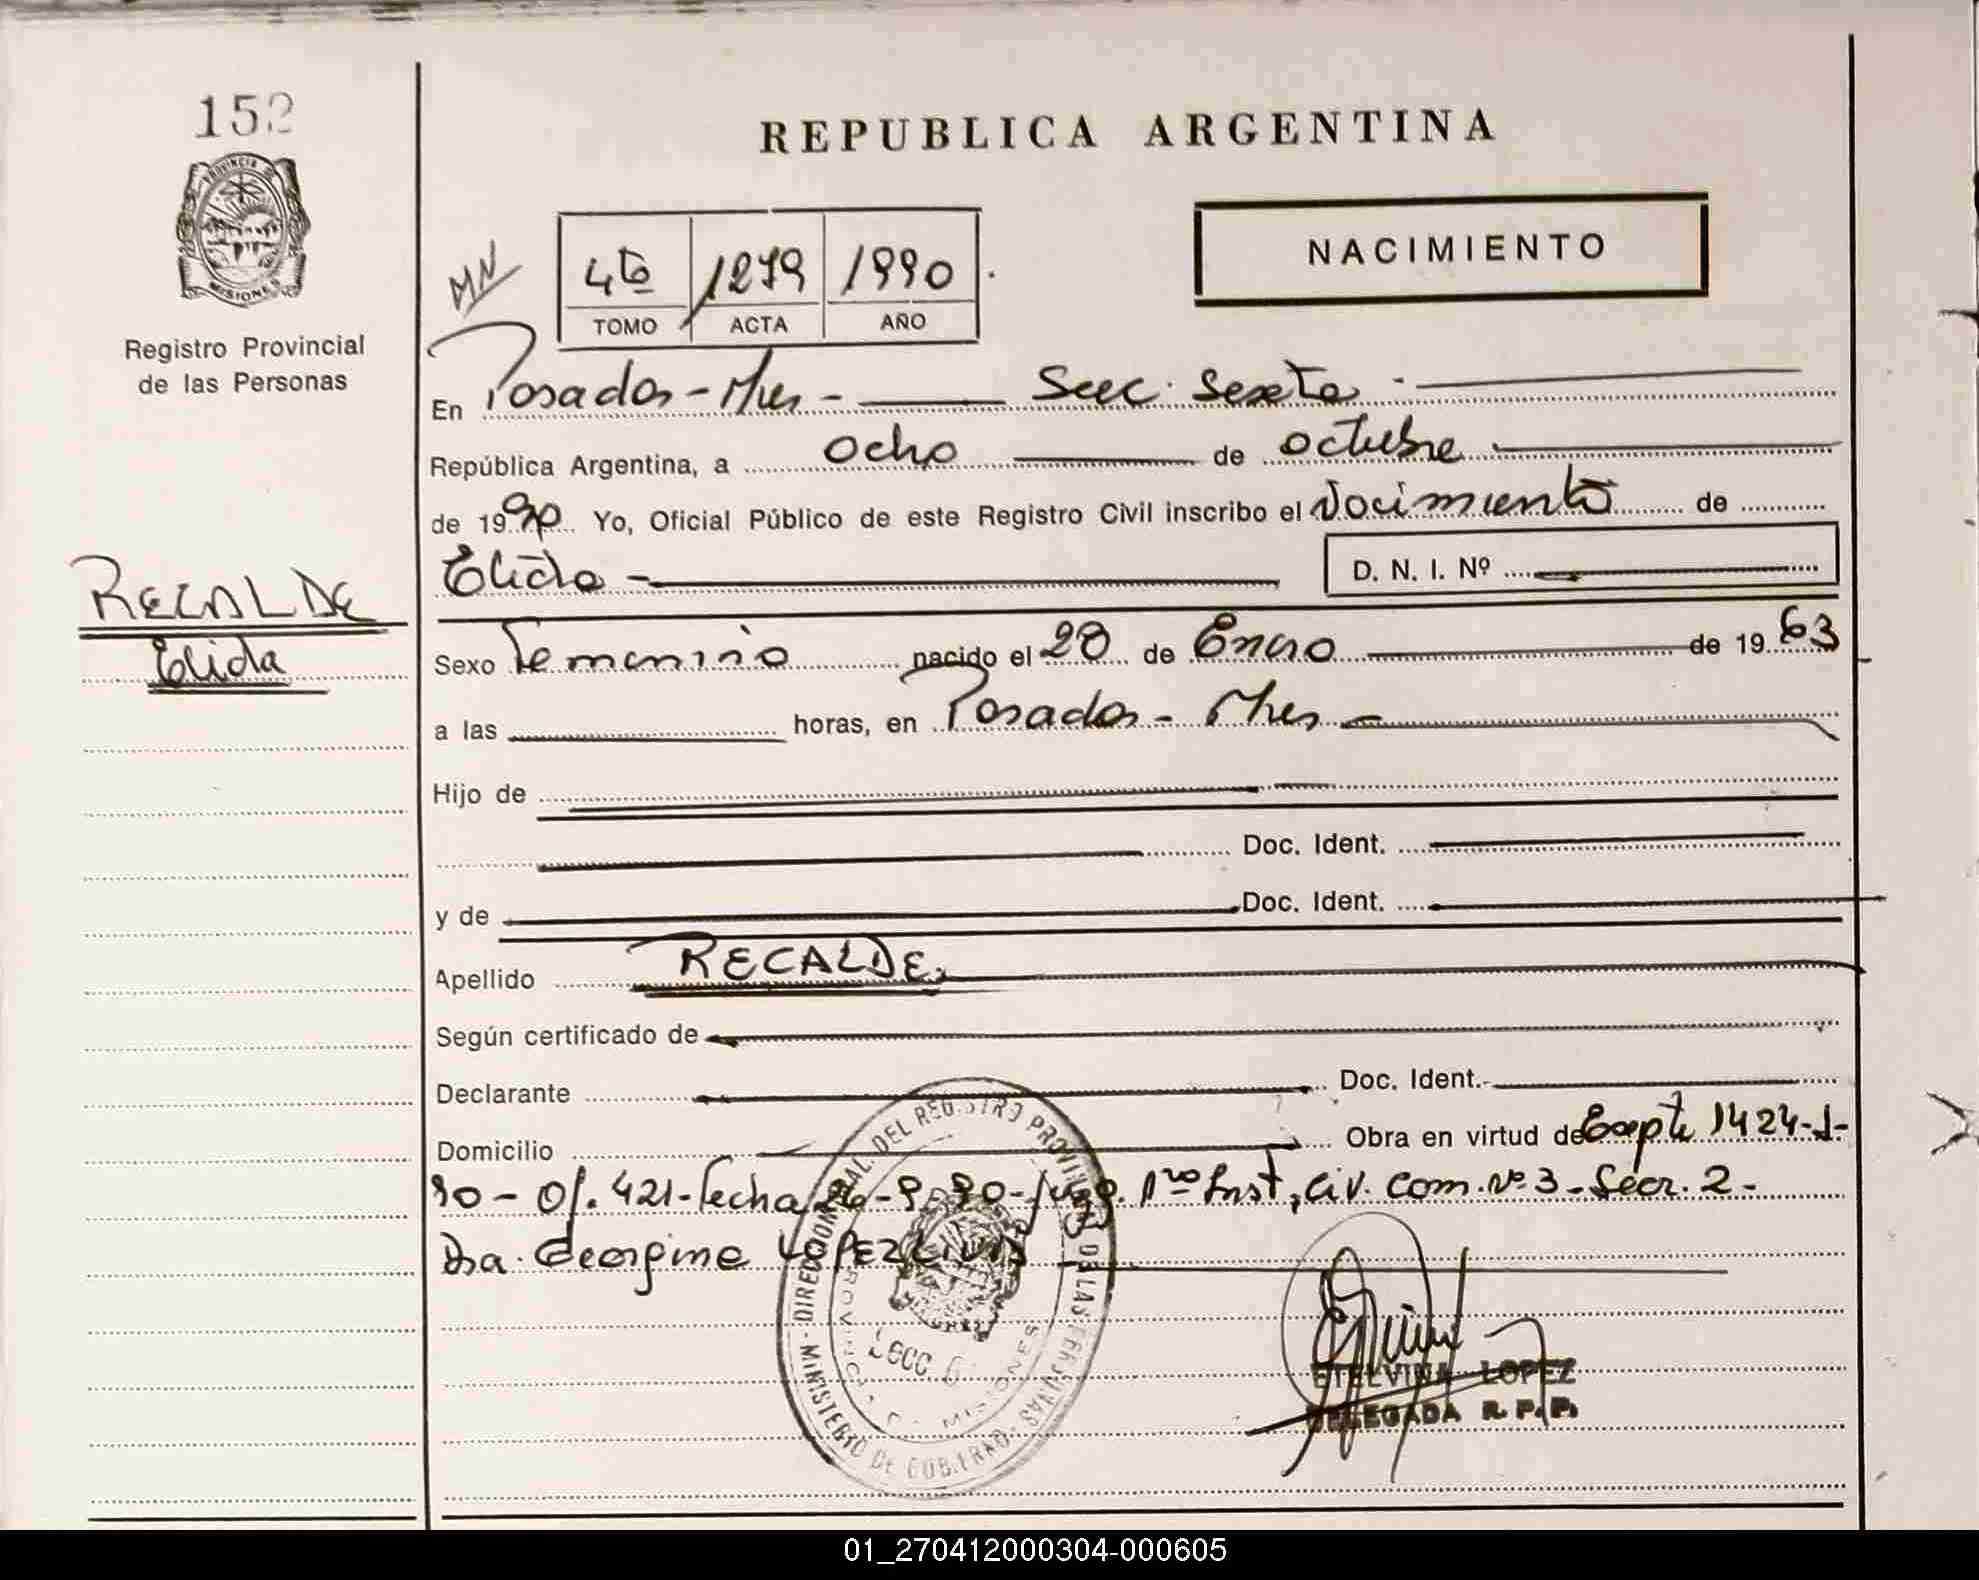 152
REPUBLICA ARGENTINA
PROVINCIA
MISIONES
Registro Provincial
de las Personas
MN
4to 1279 1990
TOMO ACTA AÑO
NACIMIENTO
En Posadas - Mnes - Secc. Sexta -
República Argentina, a ocho de octubre
de 1990 Yo, Oficial Público de este Registro Civil inscribo el Nacimiento de
Elida - D. N. I. Nº
RECALDE
Elida
Sexo Femenino nacido el 28 de Enero de 1963
a las horas, en Posadas - Mnes -
Hijo de
Doc. Ident.
y de Doc. Ident.
Apellido RECALDE
Según certificado de
Declarante Doc. Ident.
Domicilio Obra en virtud de Expte 1424-J-
90 - Of. 421 - Fecha 26-9-90 - Juzg. 1ro Inst, Civ. Com. Nº 3 - Secr. 2 -
Dra. Georgina LOPEZ
MINISTERIO DE GOBIERNO - DIRECCION GRAL. DEL REGISTRO PROVINCIAL DE LAS PERSONAS
PROVINCIA DE MISIONES
SECC. 6
ETELVINA LOPEZ
DELEGADA R. P. P.
01_270412000304-000605